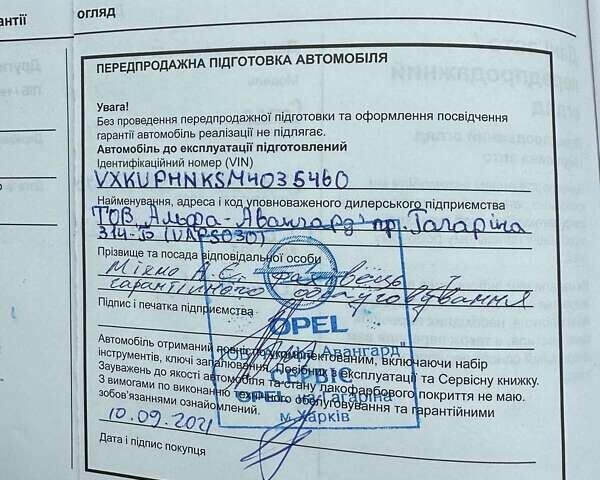 огляд
антії
ПЕРЕДПРОДАЖНА ПІДГОТОВКА АВТОМОБІЛЯ
Увага!
Без проведення передпродажної підготовки та оформлення посвідчення
гарантії автомобіль реалізації не підлягає.
Автомобіль до експлуатації підготовлений
Ідентифікаційний номер (VIN)
VXKUPHNKSM4035460
Найменування, адреса і код уповноваженого дилерського підприємства
ТОВ. Альфа-Авангард" пр. Гагаріна
314-Б (UAPS030)
Прізвище та посада відповідальної особи
Міхно А.Є. фахівець з
гарантійного обслуговування
Підпис і печатка підприємства
OPEL
Автомобіль отриманий повністю укомплектованим, включаючи набір
інструментів, ключі запалювання, Посібник з експлуатації та Сервісну книжку.
Зауважень до якості автомобіля та стану лакофарбового покриття не маю.
З вимогами по виконанню технічного обслуговування та гарантійними
зобов'язаннями ознайомлений.
Авангард"
СЕРВІС
OPEL на Гагаріна
м.Харків
10.09.2021
Дата і підпис покупця